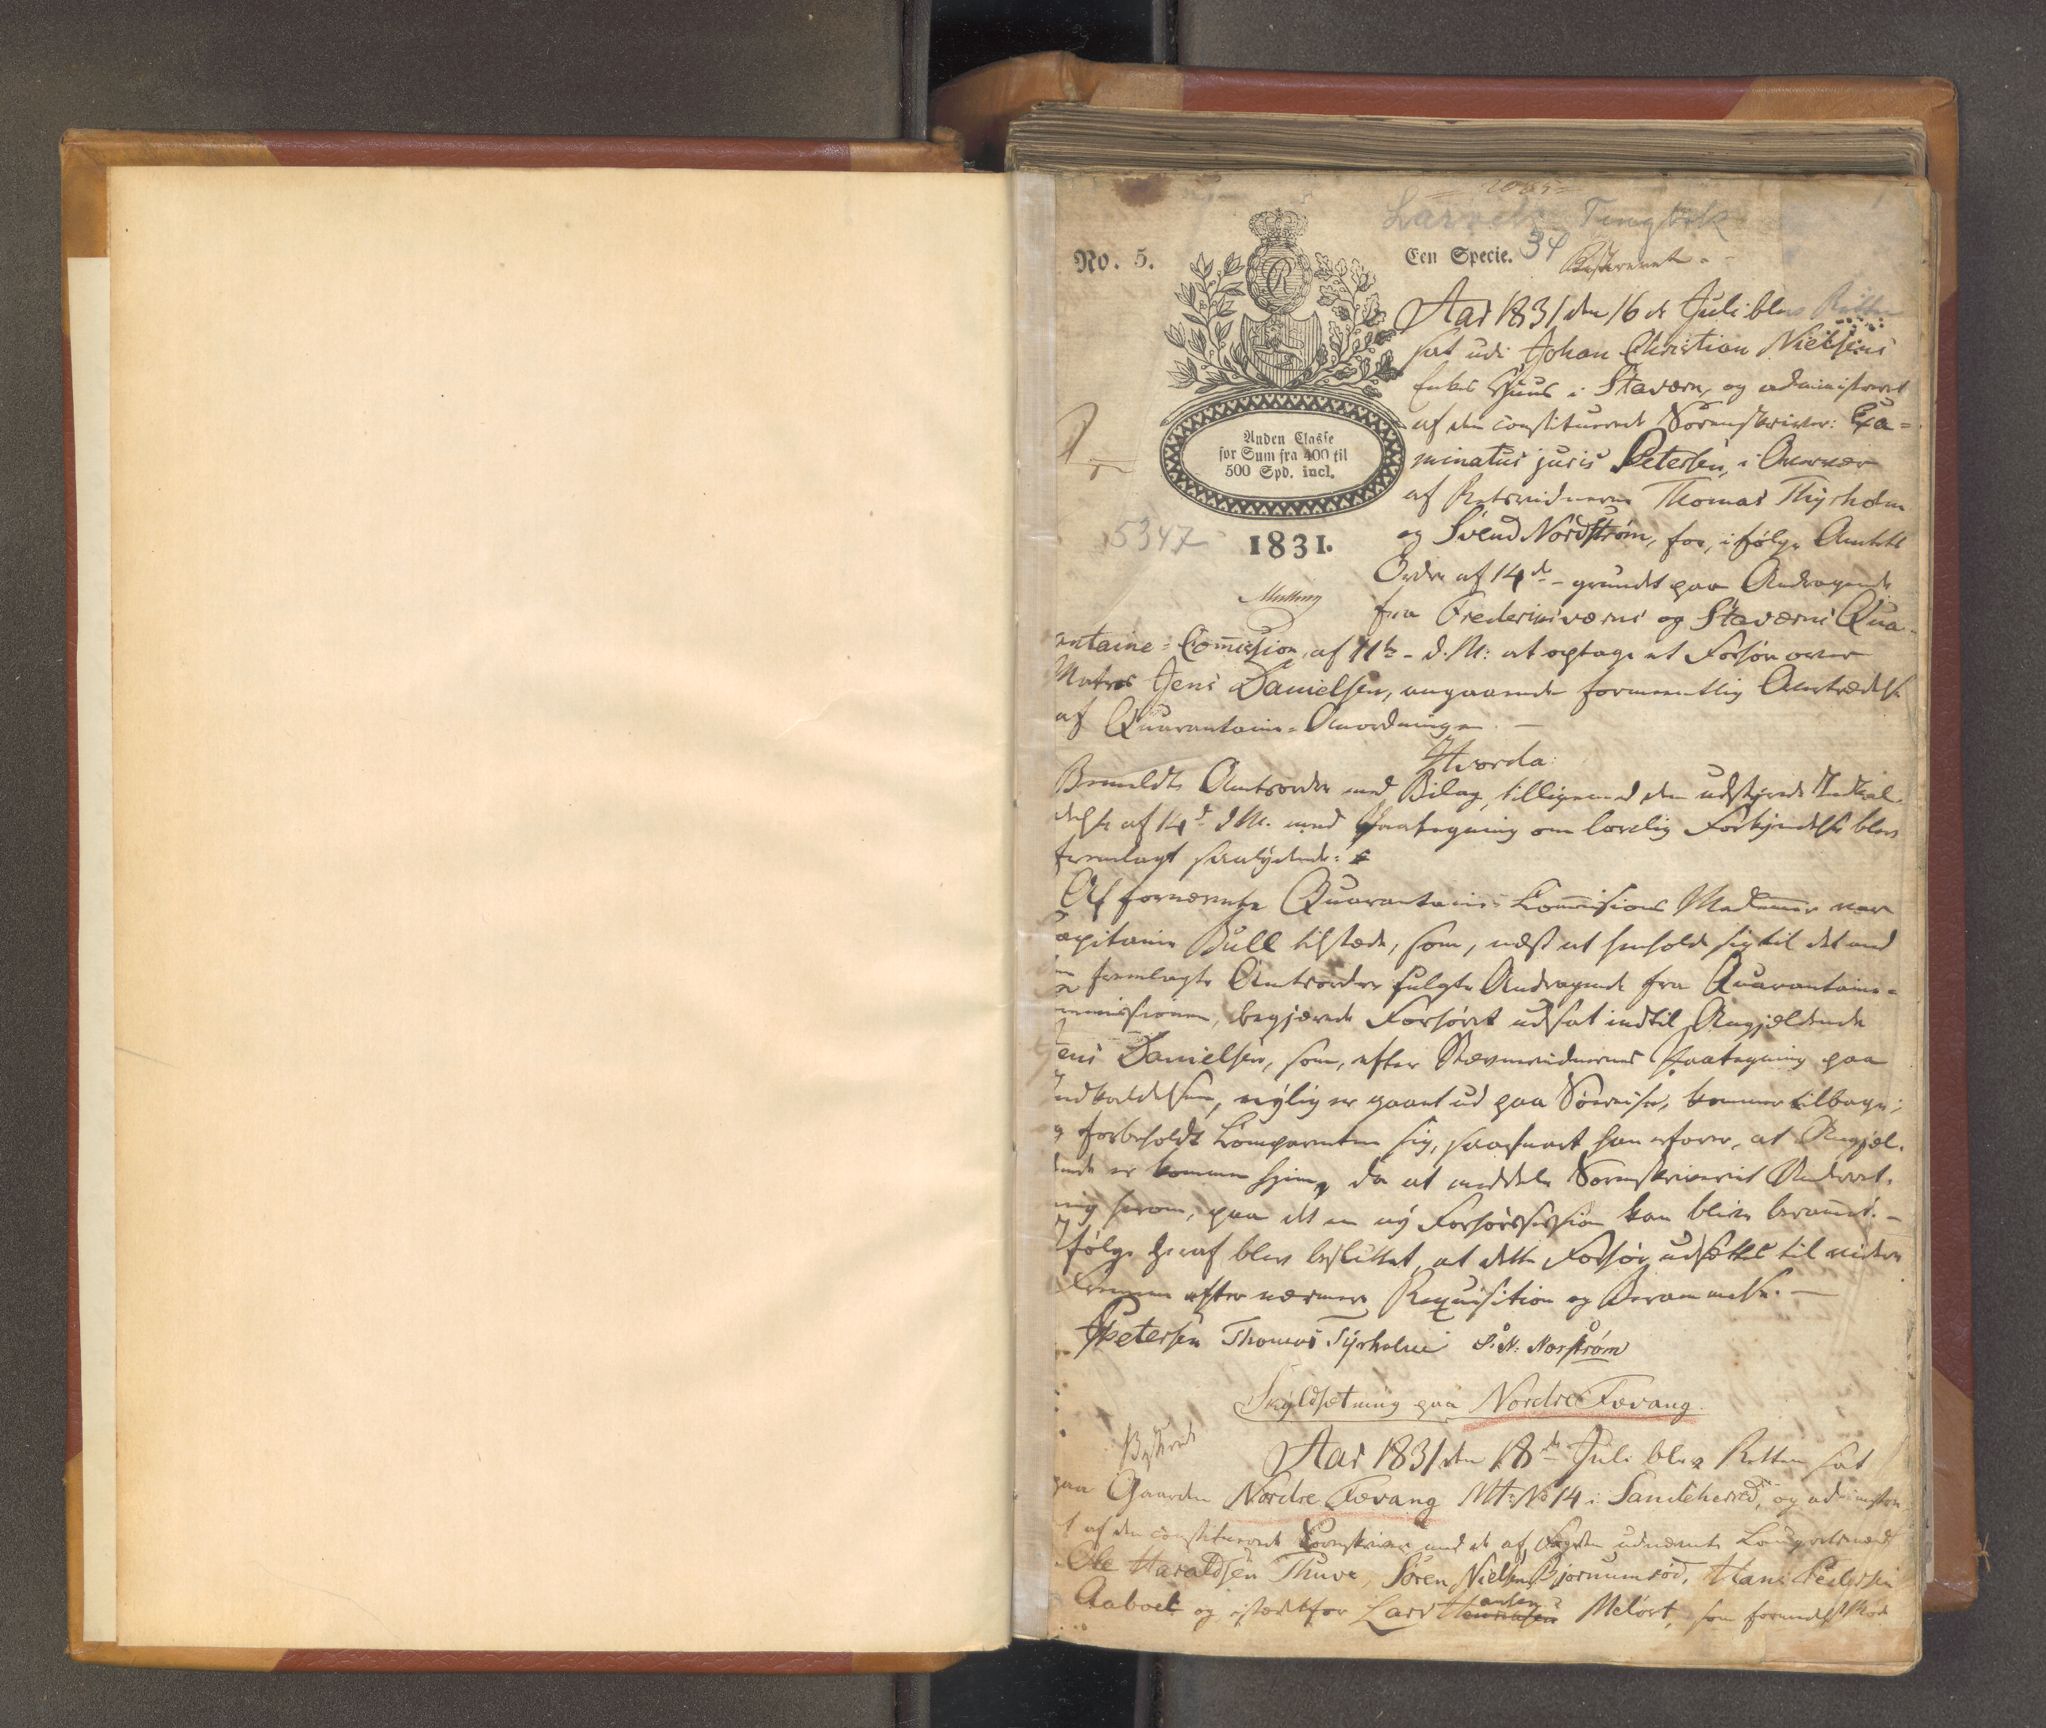 1
Larvik Tingbok
No. 5.
Een Specie. 34
Aar 1831 den 16de Juli blev Retten
sat udi Johan Christian Nielsens
Enkes Huus i Stavern, og administreret
af den constituerede Sorenskriver: Exa=
minatus juris Petersen, i Overvær
af Retsvidnerne Thomas Thyrholm
og Svend Nordstrøm, for, ifølge Amtets
Ordre af 14de grundet paa Andragende
fra Frederiksværns og Staværns Qua-
rantaine-Commission af 11te d. M: at optage et Forhør over
Matros Jens Danielsen, angaaende formeentlig Overtrædelse
af Quarantaine-Anordningen. —
Anden Classe
for Sum fra 400 til
500 Spd. incl.
5347
1831.
Hvorda:
Bemeldte Amtsordre med Bilag, tilligemed den udstædte Indkal-
delse af 14de d. M. med Paategning om lovlig Forkyndelse blev
fremlagt saalydende:
Af fornævnte Quarantaine Commissions Medlemmer var
Capitaine Bull tilstede, som, næst at henholde sig til det med
den fremlagte Amtsordre fulgte Andragende fra Quarantaine-
Commissionen, begjærede Forhøret udsat indtil Angjældende
Jens Danielsen, som, efter Stævnevidnernes Paategning paa
Indkaldelsen, nylig er gaaet ud paa Søereise, kommer tilbage;
og forbeholdt Comparenten sig, saasnart han erfarer, at Angjæl-
dende er kommen hjem, da at meddele Sorenskriveriet Underret-
ning herom, paa det en ny Forhørssession kan blive berammet. —
Ifølge heraf blev besluttet, at dette Forhør udsættes til videre
Fremme efter nærmere Requisition og Berammelse. —
Petersen Thomas Tyrholm S. N: Norstrøm
Skyldsætning paa Nordre Fevang.
Aar 1831 den 18de Juli blev Retten sat
paa Gaarden Nordre Fevang Mt: No 14 i Sandeherred, og administre-
ret af den constituerede Sorenskriver med de af Fogden udnævnte Laugrettesmænd
Ole Haraldsen Thuve, Søren Nielsen Bjørnumrød, Hans Pedersen
Aaboel og istedetfor Lars Hansen Meløst, som formedelst